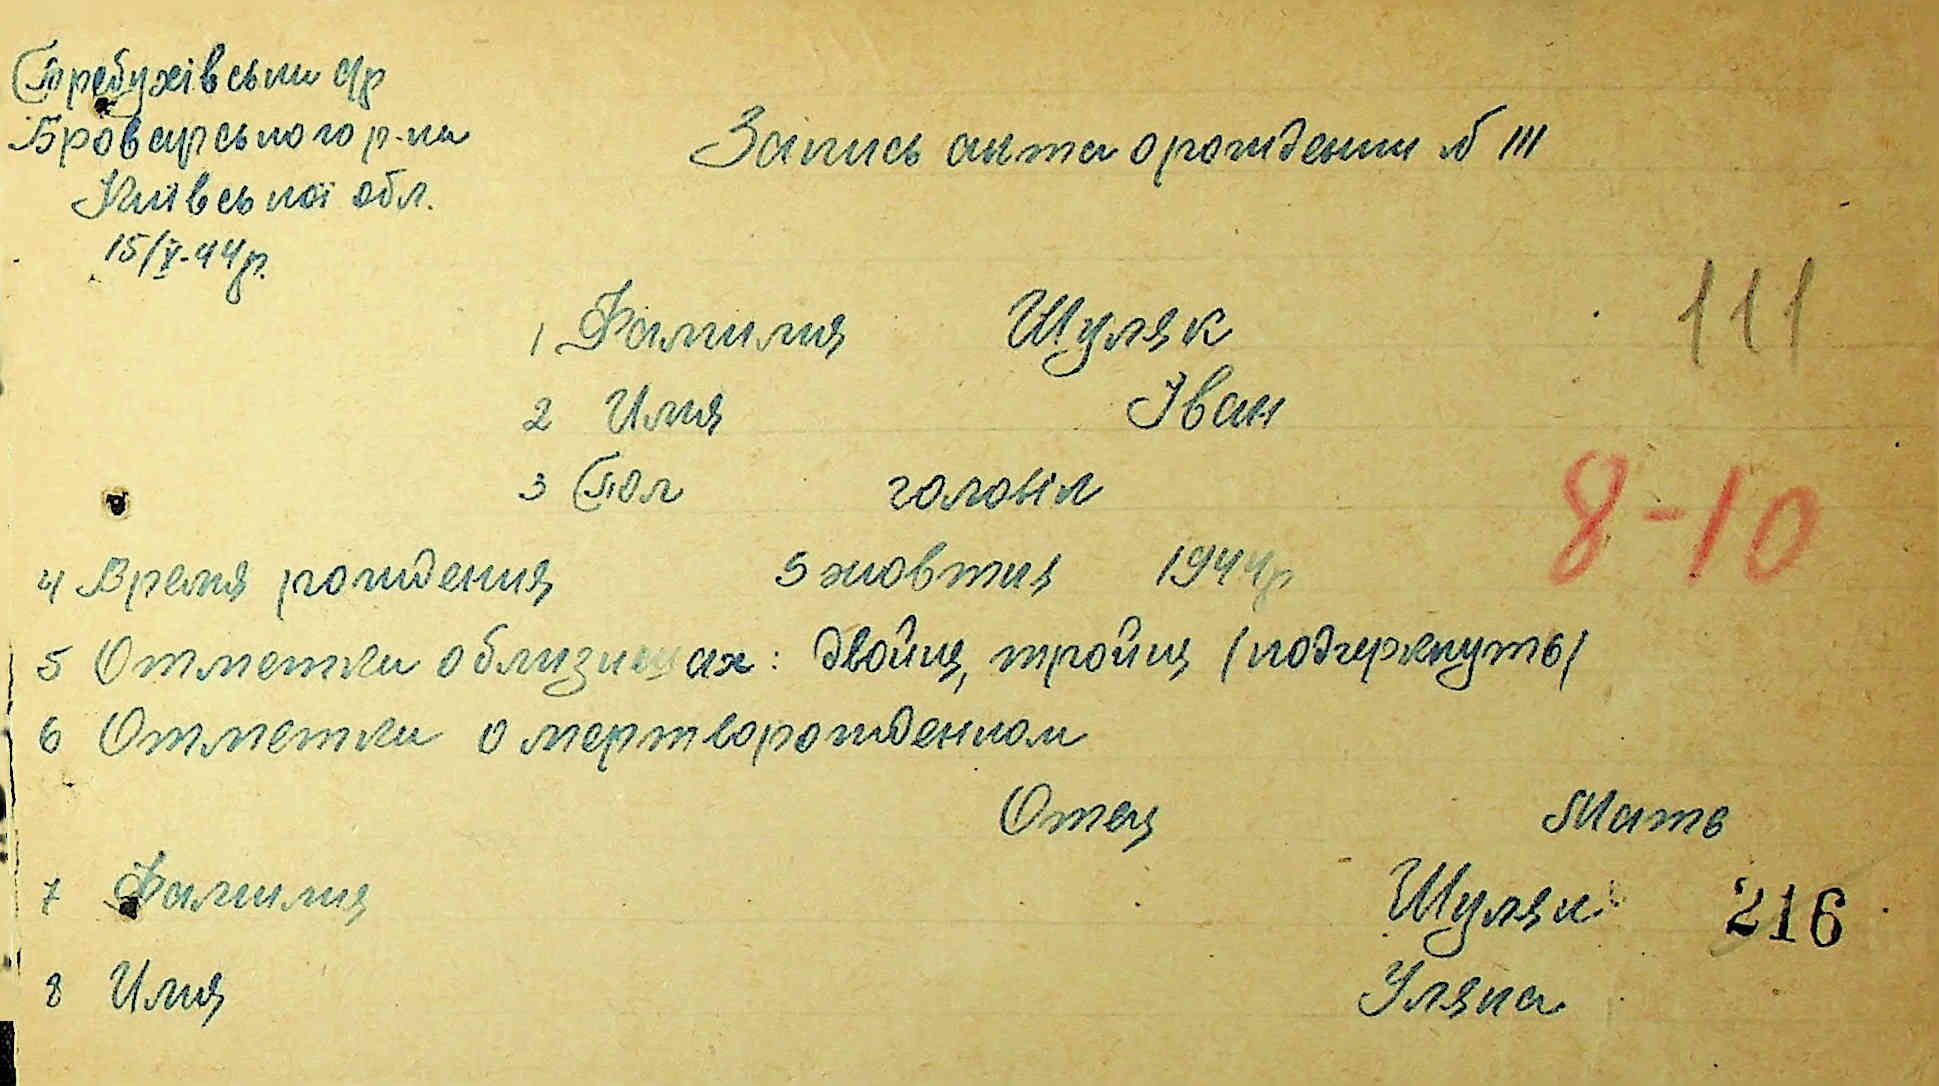 Требухівськи с/р
Броварського р-на
Київської обл.
15/V-44р.
Запись акта о рождении № 111
111
1 Фамилия Шуляк
2 Имя Іван
3 Пол головіл
8-10
4 Время рождения 5 жовтня 1944р
5 Отметки о близнецах: двойня, тройня (подчеркнуть)
6 Отметки о мертворожденном
Отец Мать
7 Фамилия Шуляк
216
8 Имя Уляна